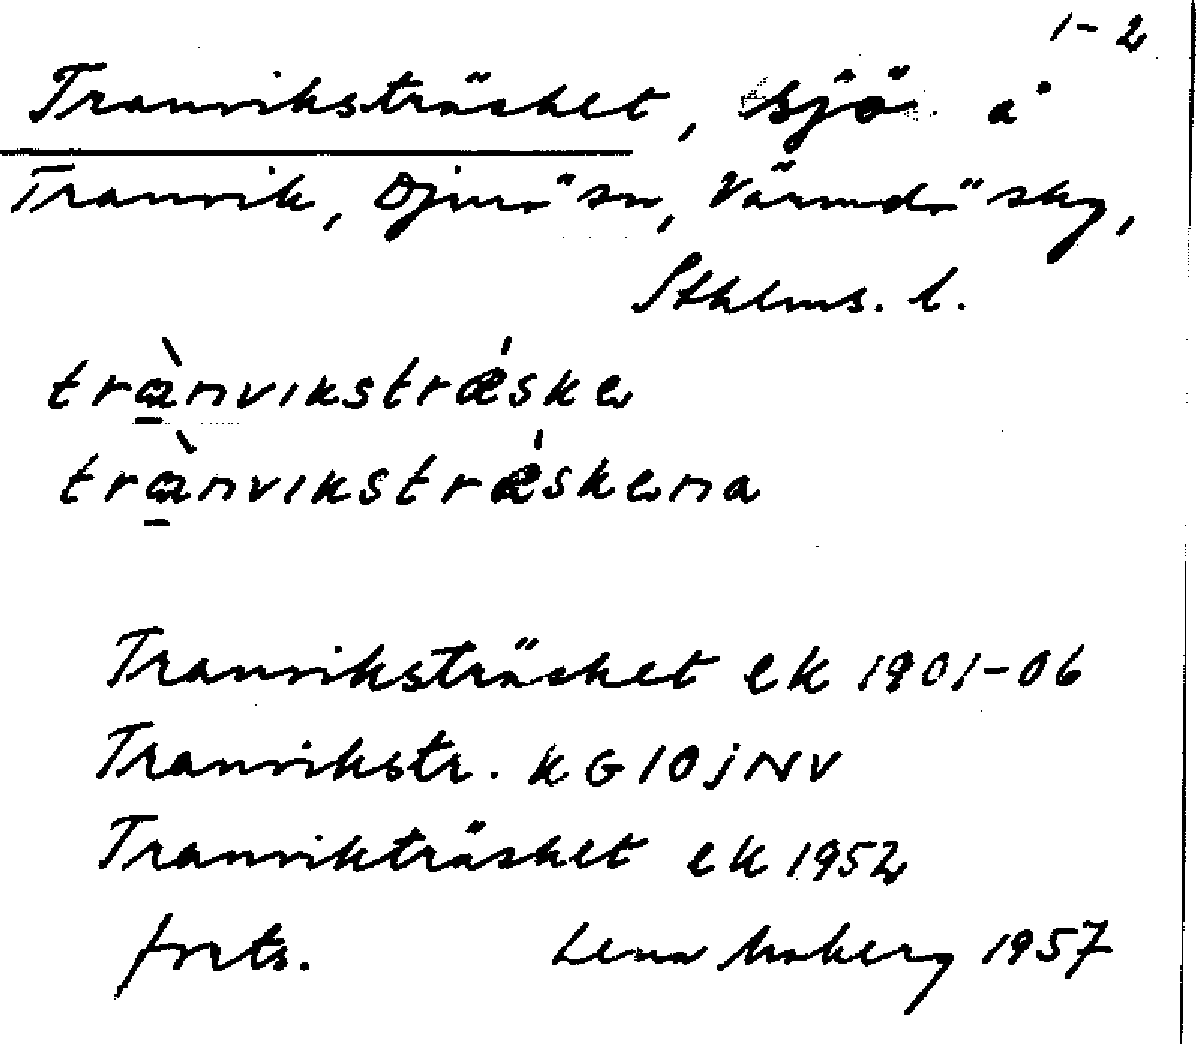 1-2
Tranviksträsket, sjö å
Tranvik, Djurö sn, Värmdö skg,
Sthlms. l.
trànvikstrǽske
trànvikstrǽskena
Tranviksträsket ek 1901-06
Tranvikstr. kG10jNV
Tranvikträsket ek 1952
forts. Lena Moberg 1957